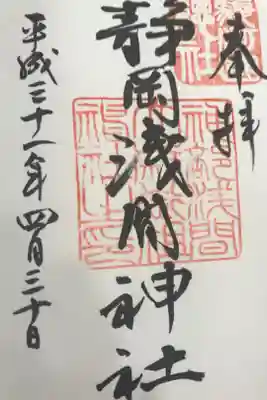 奉拝
静岡浅間神社
平成三十一年四月三十日